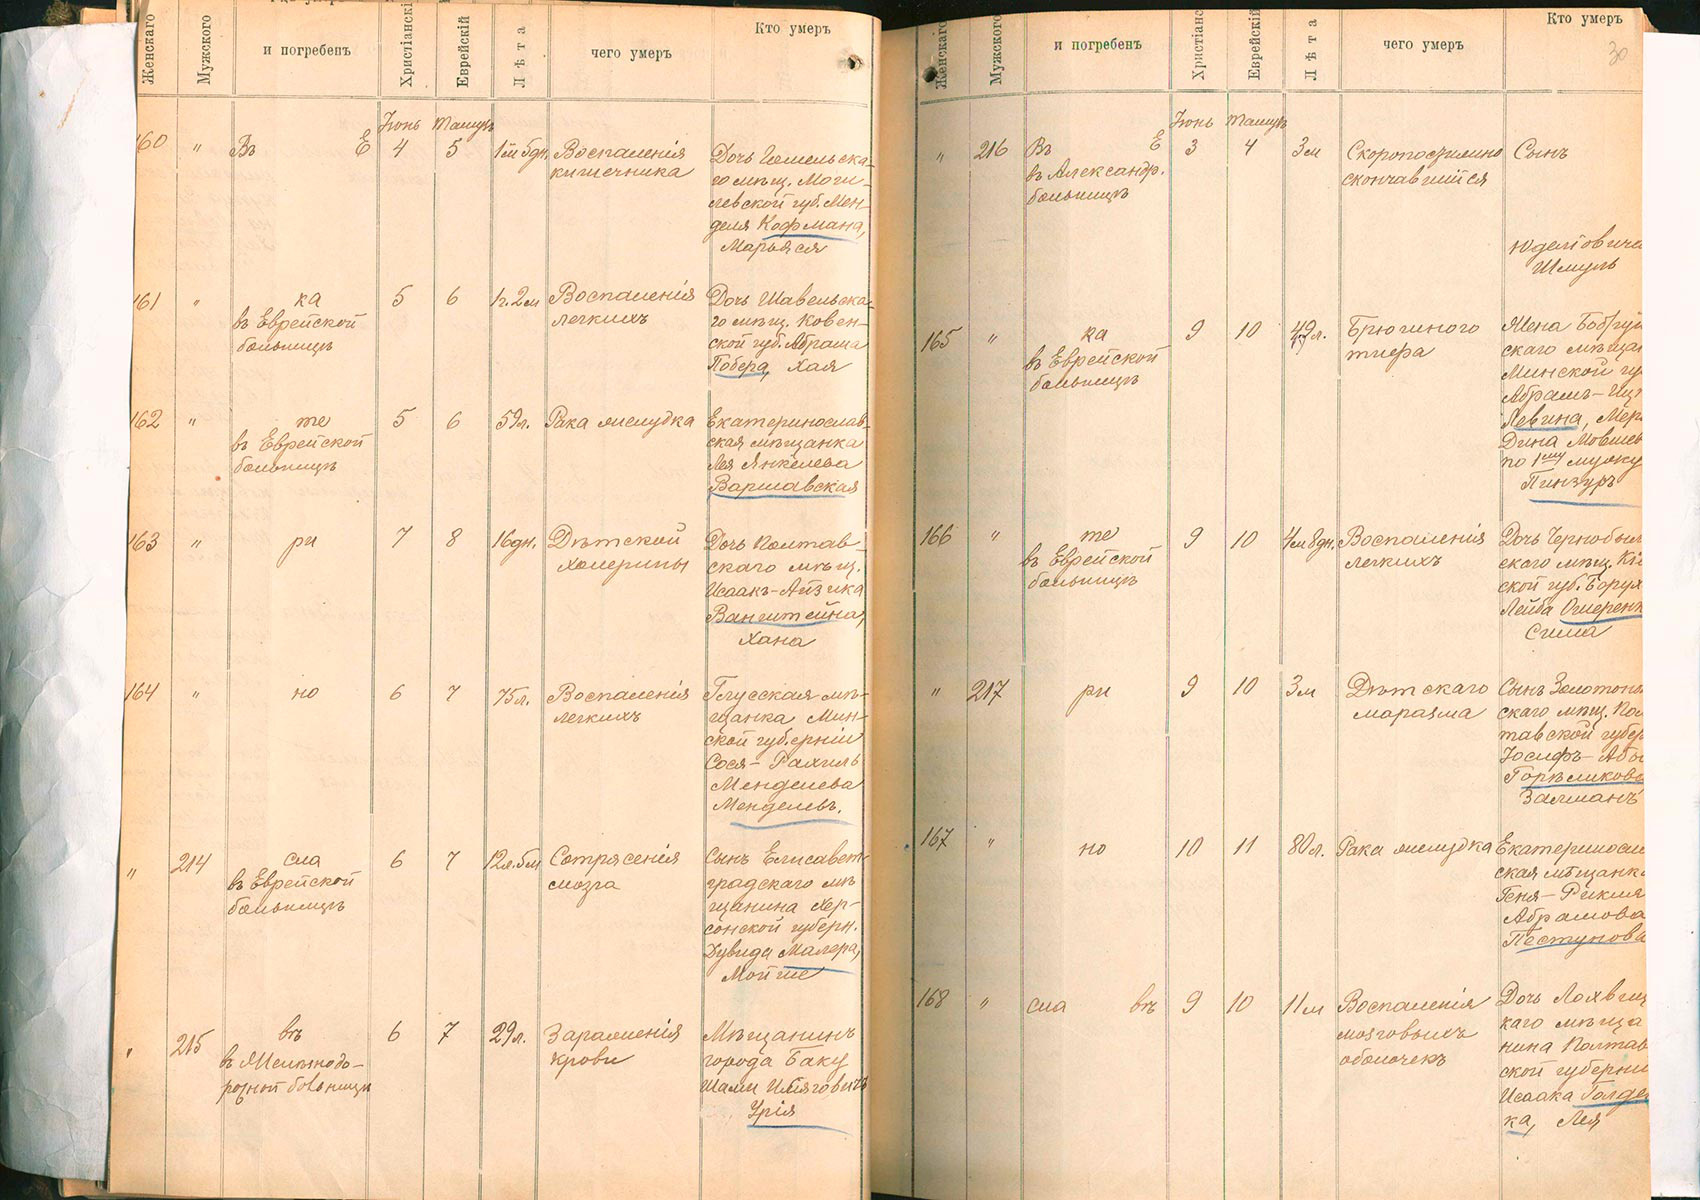 Женскаго
Мужского
и погребенъ
Христіанскі
Еврейскій
Лѣта
чего умеръ
Кто умеръ
Іюнь Тамузъ
160 " Въ Е 4 5 1м 5дн. Воспаленія
кишечника
Дочь Гомельска-
го мѣщ. Моги-
левской губ. Мен-
деля Кофмана,
Марьяся
161 " ка 5 6 1г. 2м Воспаленія
въ Еврейской
больницѣ
легкихъ
Дочь Шавельска-
го мѣщ. Ковен-
ской губ. Абрама
Побера, Хая
162 " те 5 6 59л. Рака желудка
въ Еврейской
больницѣ
Екатеринослав-
ская мѣщанка
Лея Янкелева
Варшавская
163 " ри 7 8 16дн. Дѣтской
холерины
Дочь Полтав-
скаго мѣщ.
Исаакъ-Айзика
Ванштейна,
Хана
164 " но 6 7 75л. Воспаленія
легкихъ
Глусская мѣ-
щанка Мин-
ской губерніи
Сося-Рахиль
Менделева
Менделевъ.
" 214 сла 6 7 12л. 5м Сотрясенія
въ Еврейской
больницѣ
мозга
Сынъ Елисавет-
градскаго мѣ
щанина Хер-
сонской губерн.
Дувида Малера,
Мойше
" 215 въ 6 7 29л. Зараженія
въ Желѣзнодо-
рожной больницѣ
крови
Мѣщанинъ
города Баку
Урія
Женскаго
Мужского
и погребенъ
Христіанс
Еврейскій
Лѣта
чего умеръ
Кто умеръ
30
Іюнь Тамузъ
" 216 Въ Е 3 4 3м Скоропостижно
въ Александр.
больницѣ
скончавшійся
Сынъ
Юделовича
Шмуль
165 " ка 9 10 49л. Брюшного
въ Еврейской
больницѣ
тифа
Жена Бобруй
скаго мѣщан
Минской гу
Абрамъ-Иц
Левина, Мер
Дина Мовшев
по 1му мужу
Пинзуръ
166 " те 9 10 4м 8дн. Воспаленія
въ Еврейской
больницѣ
легкихъ
Дочь Чернобыл
скаго мѣщ. Кі
ской губ. Борух
Лейба Ошерен
Сима
" 217 ри 9 10 3м Дѣтскаго
маразма
Сынъ Золотоно
скаго мѣщ. Пол
тавской губер
Іосифъ-Аб
Горѣликова
Залманъ
167 " но 10 11 80л. Рака желудка
Екатериносл
ская мѣщанк
Геня-Рикля
Абрамова
Пестунова
168 " сла въ 9 10 11м Воспаленія
мозговыхъ
оболочекъ
Дочь Лохвиц
каго мѣща
нина Полтав
ской губерні
Исаака Голде
ка, Лея